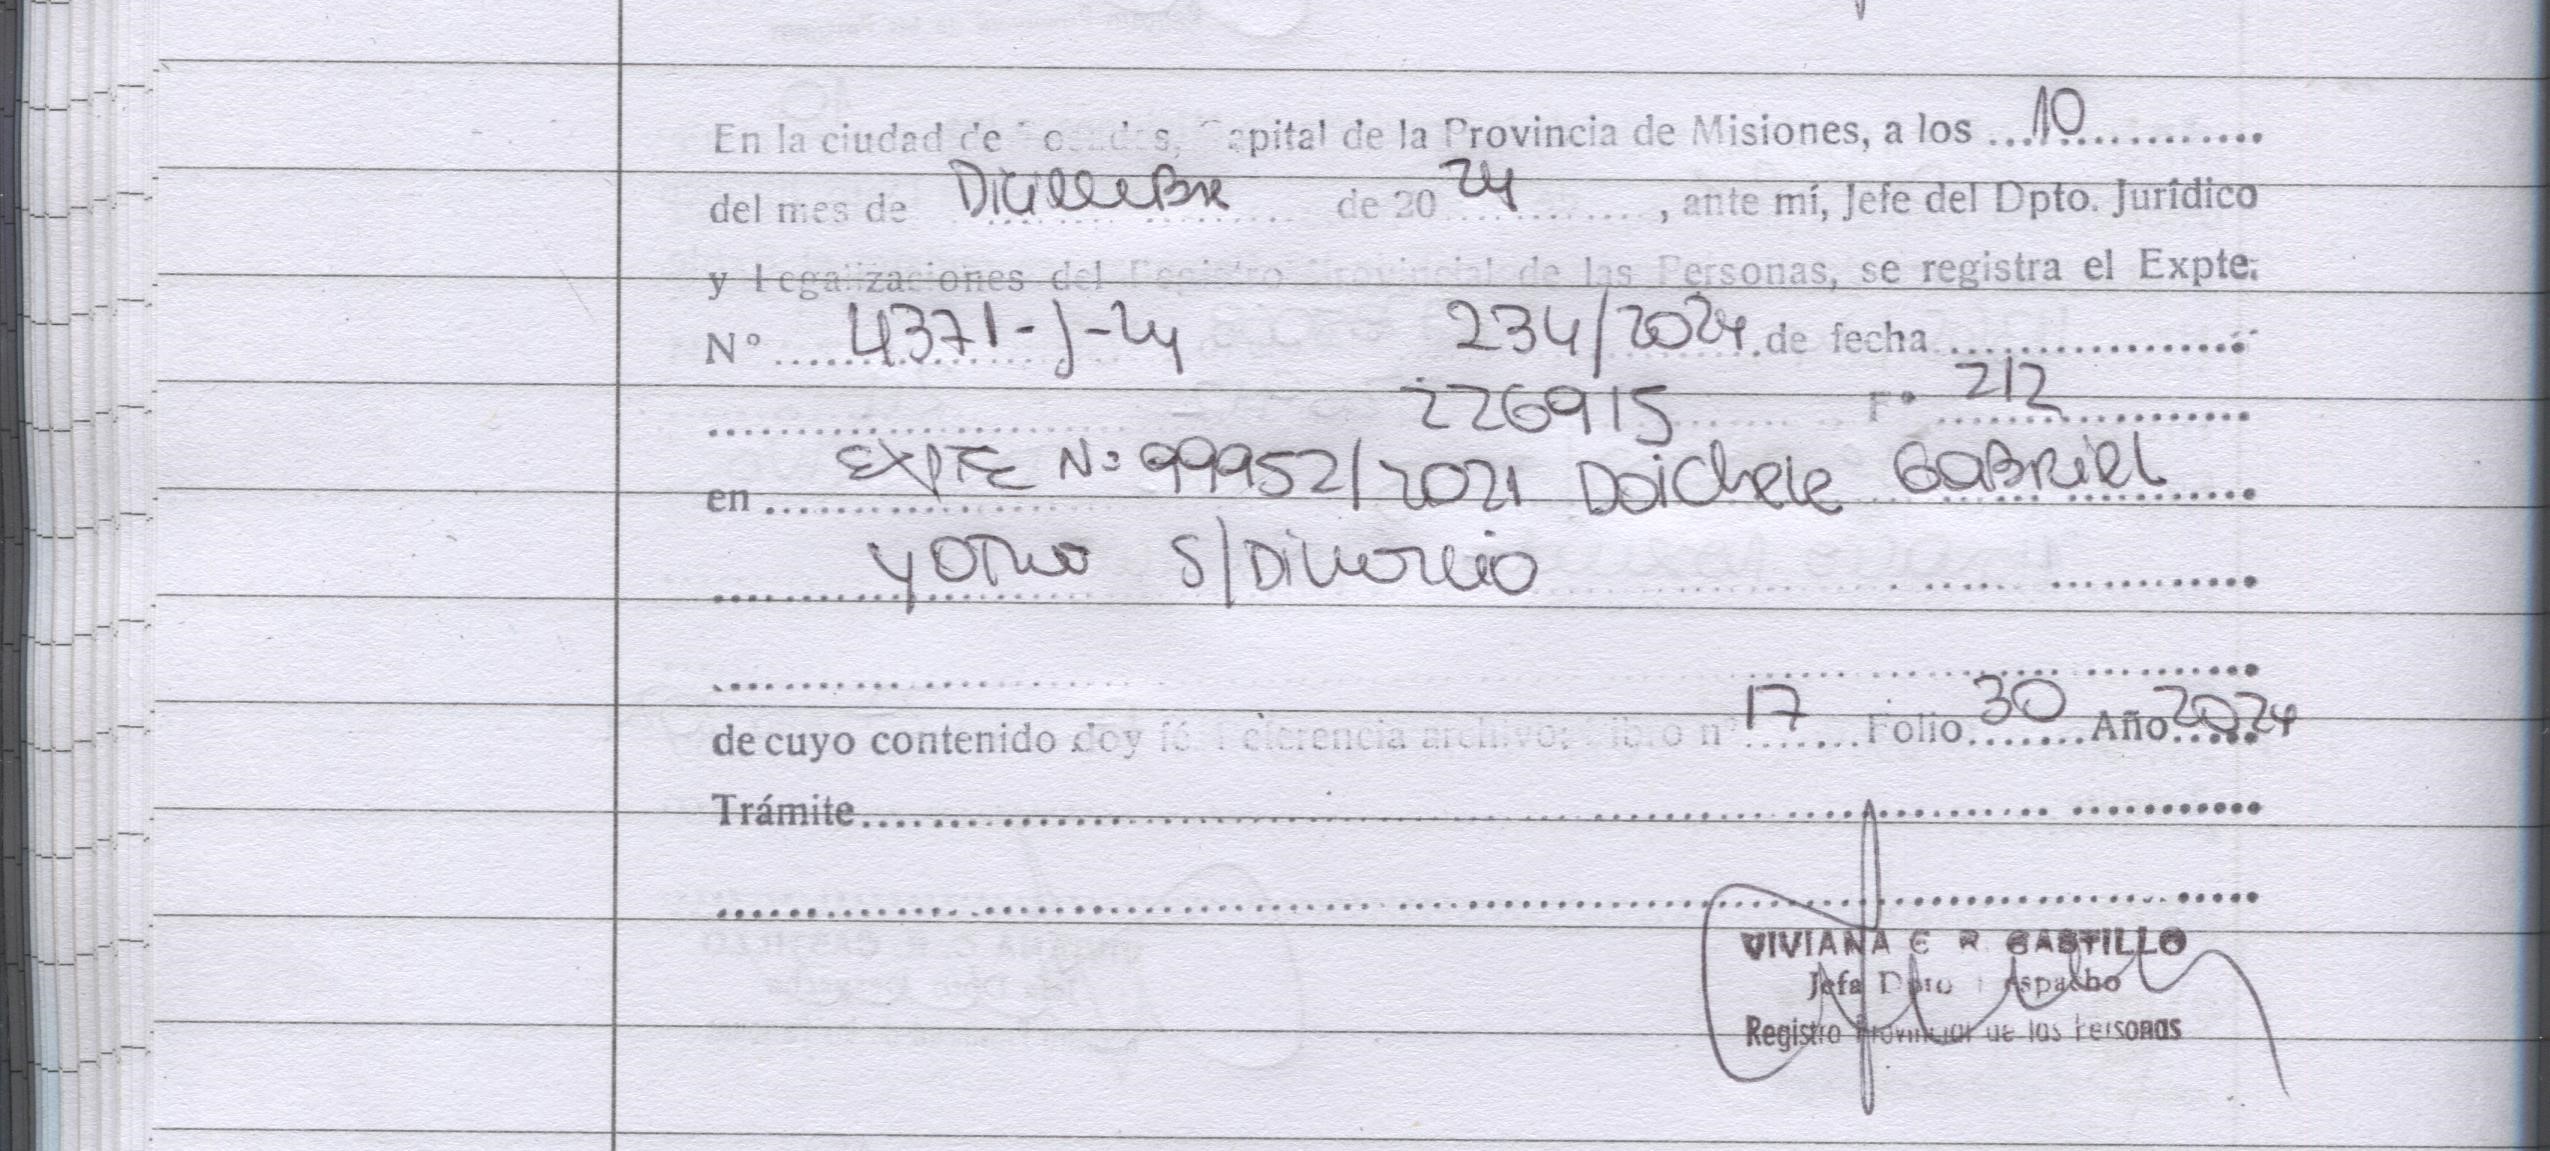 En la ciudad de Posadas, Capital de la Provincia de Misiones, a los ...10............
del mes de Diciembre de 20 24 ............, ante mí, Jefe del Dpto. Jurídico
y Legalizaciones del Registro Provincial de las Personas, se registra el Expte.
N° .... 4371-J-24 234/2024 de fecha ..................
226915 F° 212
en EXPTE N: 99952/2021 Doichele GABRIEL
y OTRO S/DIVORCIO
de cuyo contenido doy fé. Referencia archivo: Libro n° 17 Folio 30 Año 2024
Trámite
VIVIANA E R CASTILLO
Jefa Dpto Despacho
Registro Provincial de las Personas